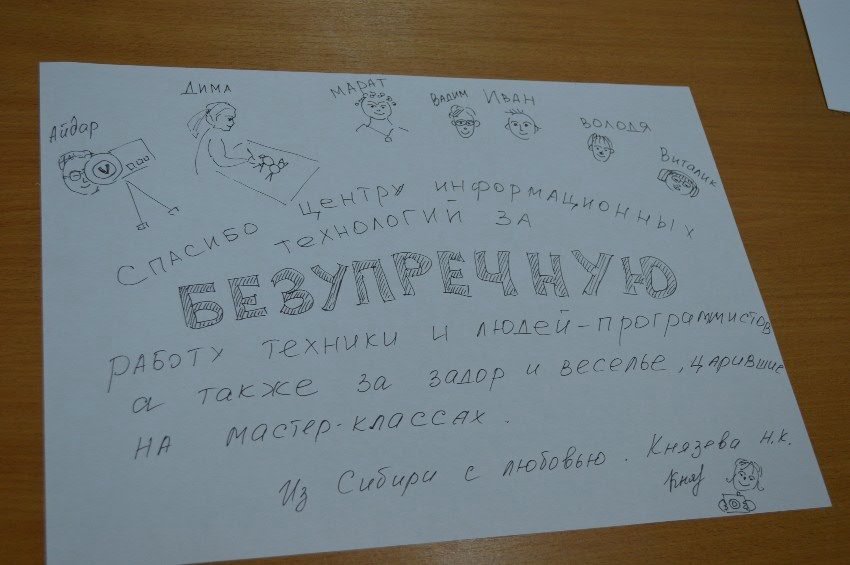 Айдар
Дима
Марат
Вадим
Иван
Володя
Виталик
Спасибо центру информационных
технологий за
БЕЗУПРЕЧНУЮ
работу техники и людей-программистов
а также за задор и веселье, царившие
на мастер-классах.
Из Сибири с любовью. Князева Н.К.